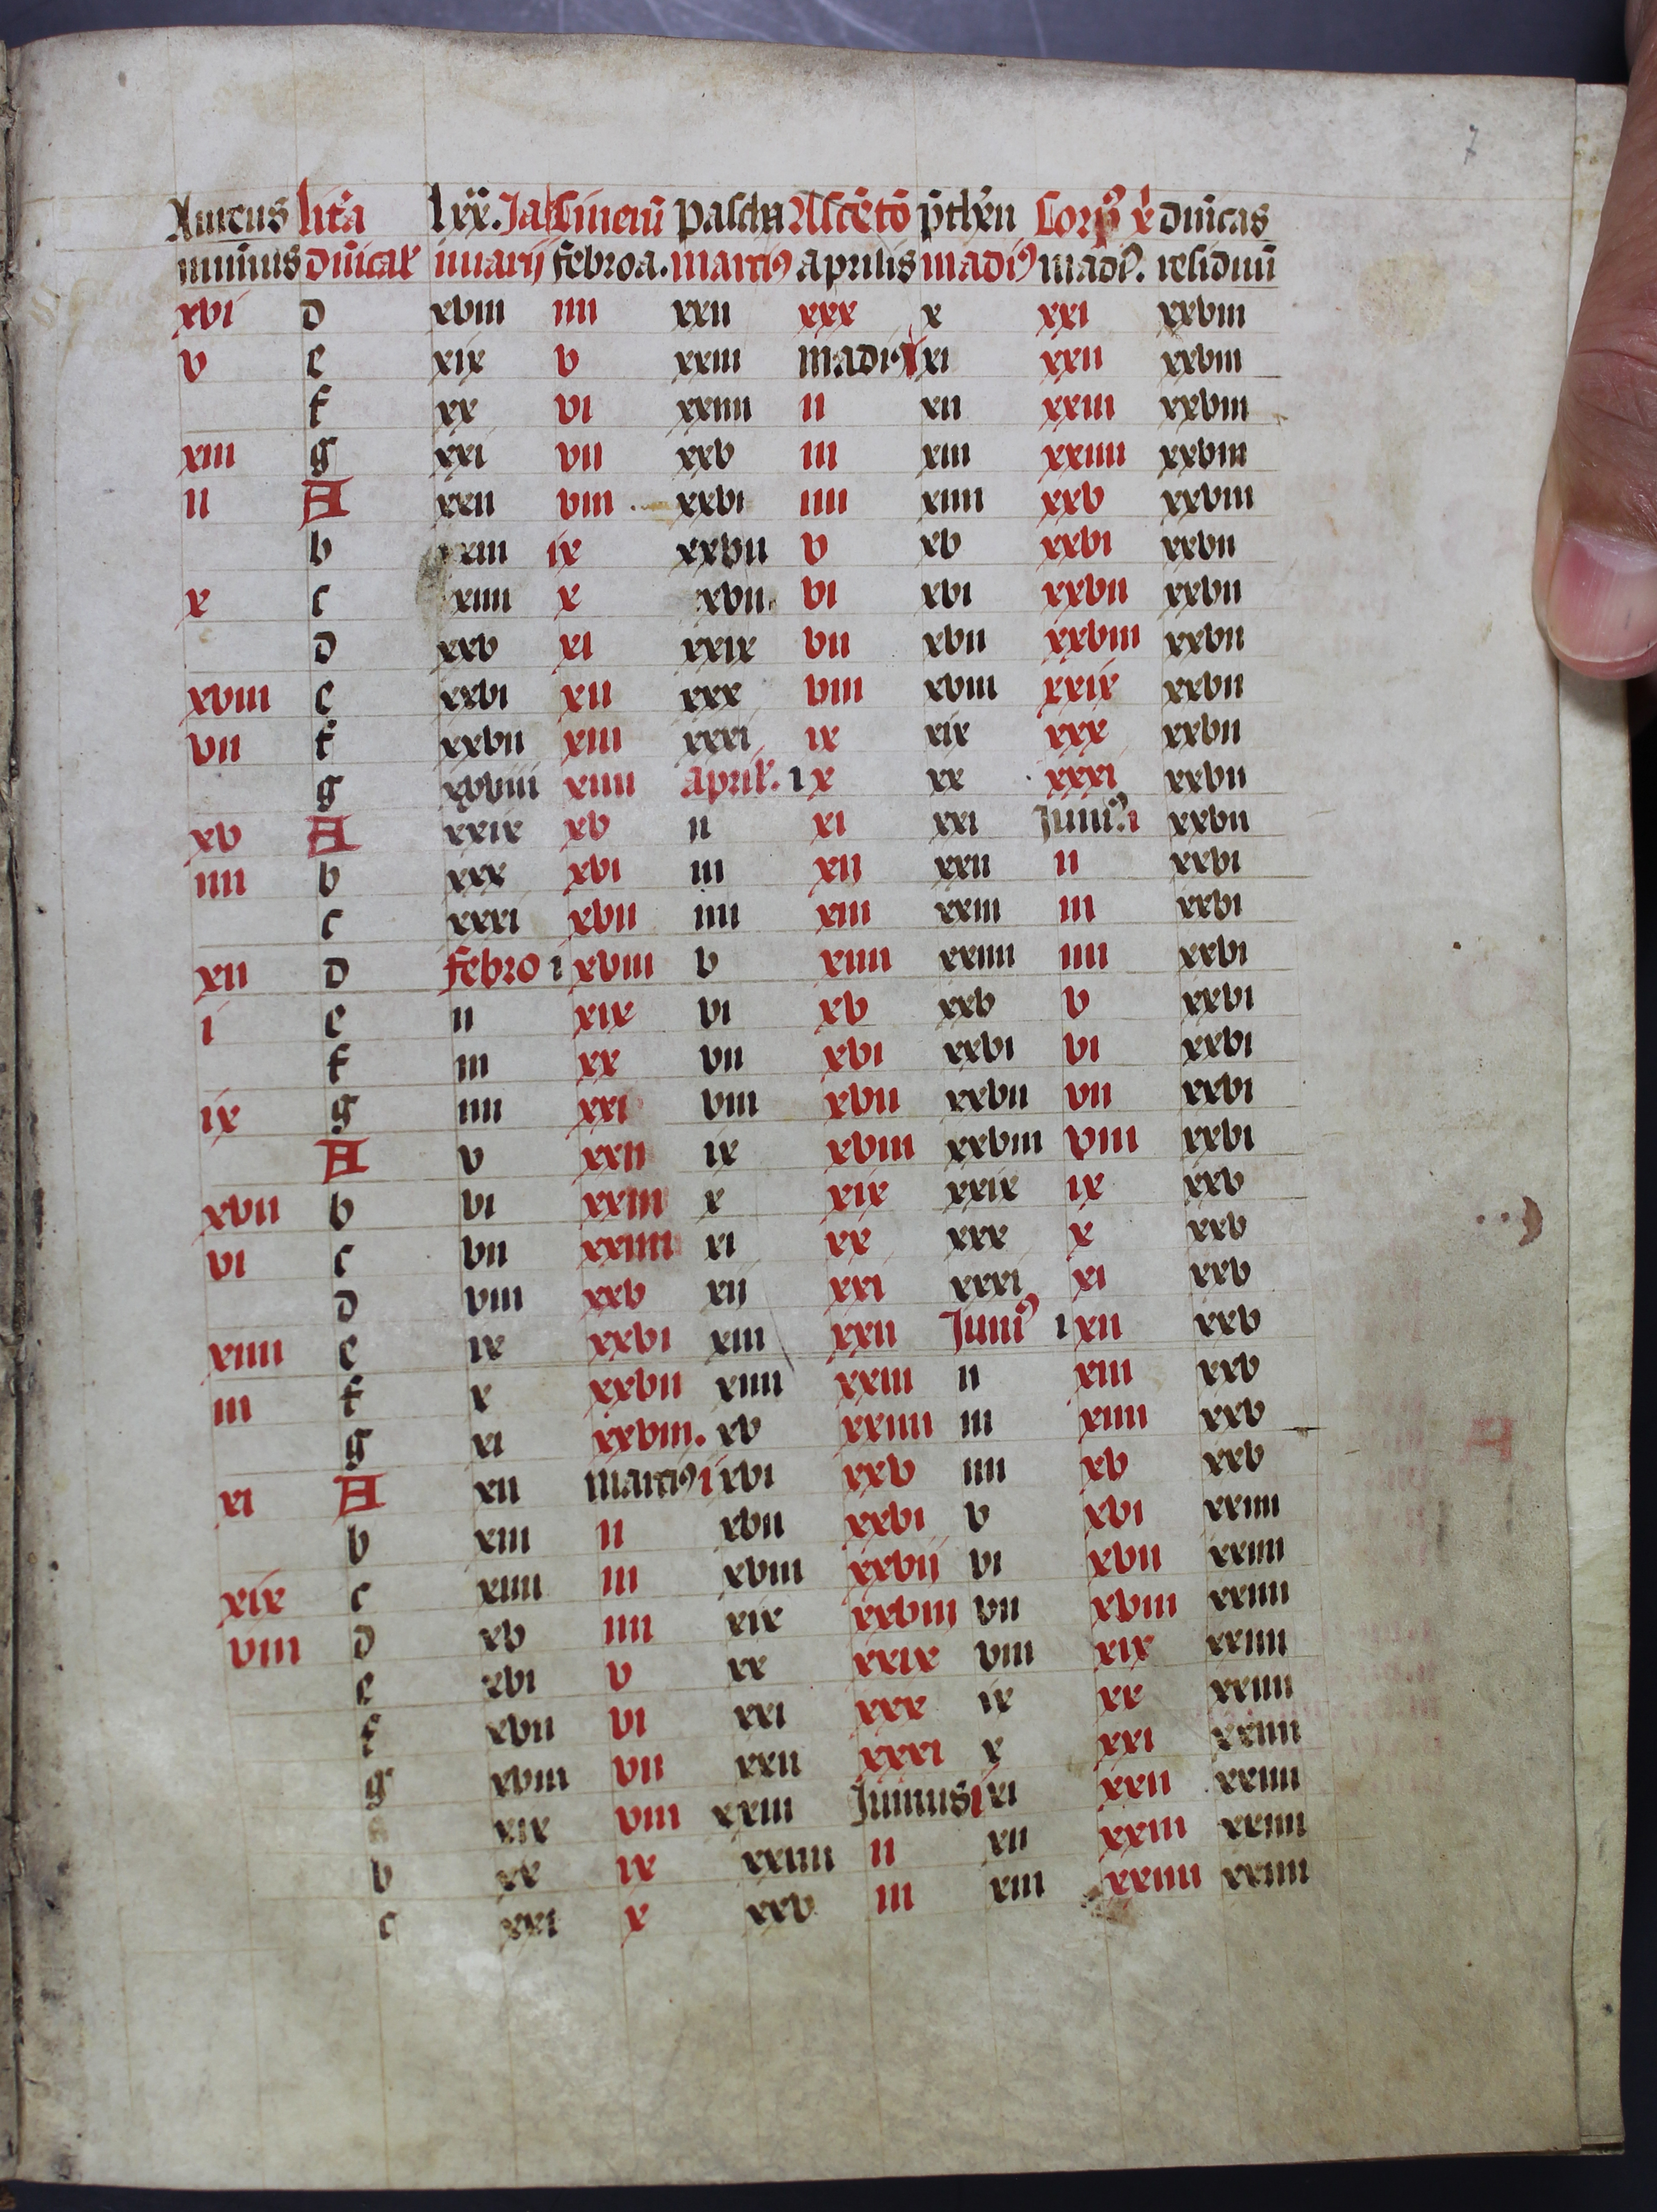 7
Aureus lr̄a lxx. Ja Cinerū pascha Ascēto p̄thēn Corpꝯ x̄ dn̄icas
numus dn̄ical' nuarij febroa. marciꝯ aprilis madiꝯ madiꝯ. residuū
xvi d xviii iiii xxii xxx x xxi xxviii
v e xix v xxiii madiꝯ i xi xxii xxviii
f xx vi xxiiii ii xii xxiii xxviii
xiii g xxi vii xxv iii xiii xxiiii xxviii
ii A xxii viii xxvi iiii xiiii xxv xxviii
b xxiii ix xxvii v xv xxvi xxvii
x c xxiiii x xxvii vi xvi xxvii xxvii
d xxv xi xxix vii xvii xxviii xxvii
xviii e xxvi xii xxx viii xviii xxix xxvii
vii f xxvii xiii xxxi ix xix xxx xxvii
g xxviii xiiii april'. i x xx xxxi xxvii
xv A xxix xv ii xi xxi Juniꝯ. i xxvii
iiii b xxx xvi iii xii xxii ii xxvi
c xxxi xvii iiii xiii xxiii iii xxvi
xii d febro i xviii v xiiii xxiiii iiii xxvi
i e ii xix vi xv xxv v xxvi
f iii xx vii xvi xxvi vi xxvi
ix g iiii xxi viii xvii xxvii vii xxvi
A v xxii ix xviii xxviii viii xxvi
xvii b vi xxiii x xix xxix ix xxv
vi c vii xxiiii xi xx xxx x xxv
d viii xxv xii xxi xxxi xi xxv
xiiii e ix xxvi xiii xxii Juniꝯ i xii xxv
iii f x xxvii xiiii xxiii ii xiii xxv
g xi xxviii. xv xxiiii iii xiiii xxv
xi A xii marciꝯ i xvi xxv iiii xv xxv
b xiii ii xvii xxvi v xvi xxiiii
xix c xiiii iii xviii xxvij vi xvii xxiiii
viii d xv iiii xix xxviii vii xviii xxiiii
e xvi v xx xxix viii xix xxiiii
f xvii vi xxi xxx ix xx xxiiii
g xviii vii xxii xxxi x xxi xxiiii
xix viii xxiii Junius i xi xxii xxiiii
b xx ix xxiiii ii xii xxiii xxiiii
c xxi x xxv iii xiii xxiiii xxiiii